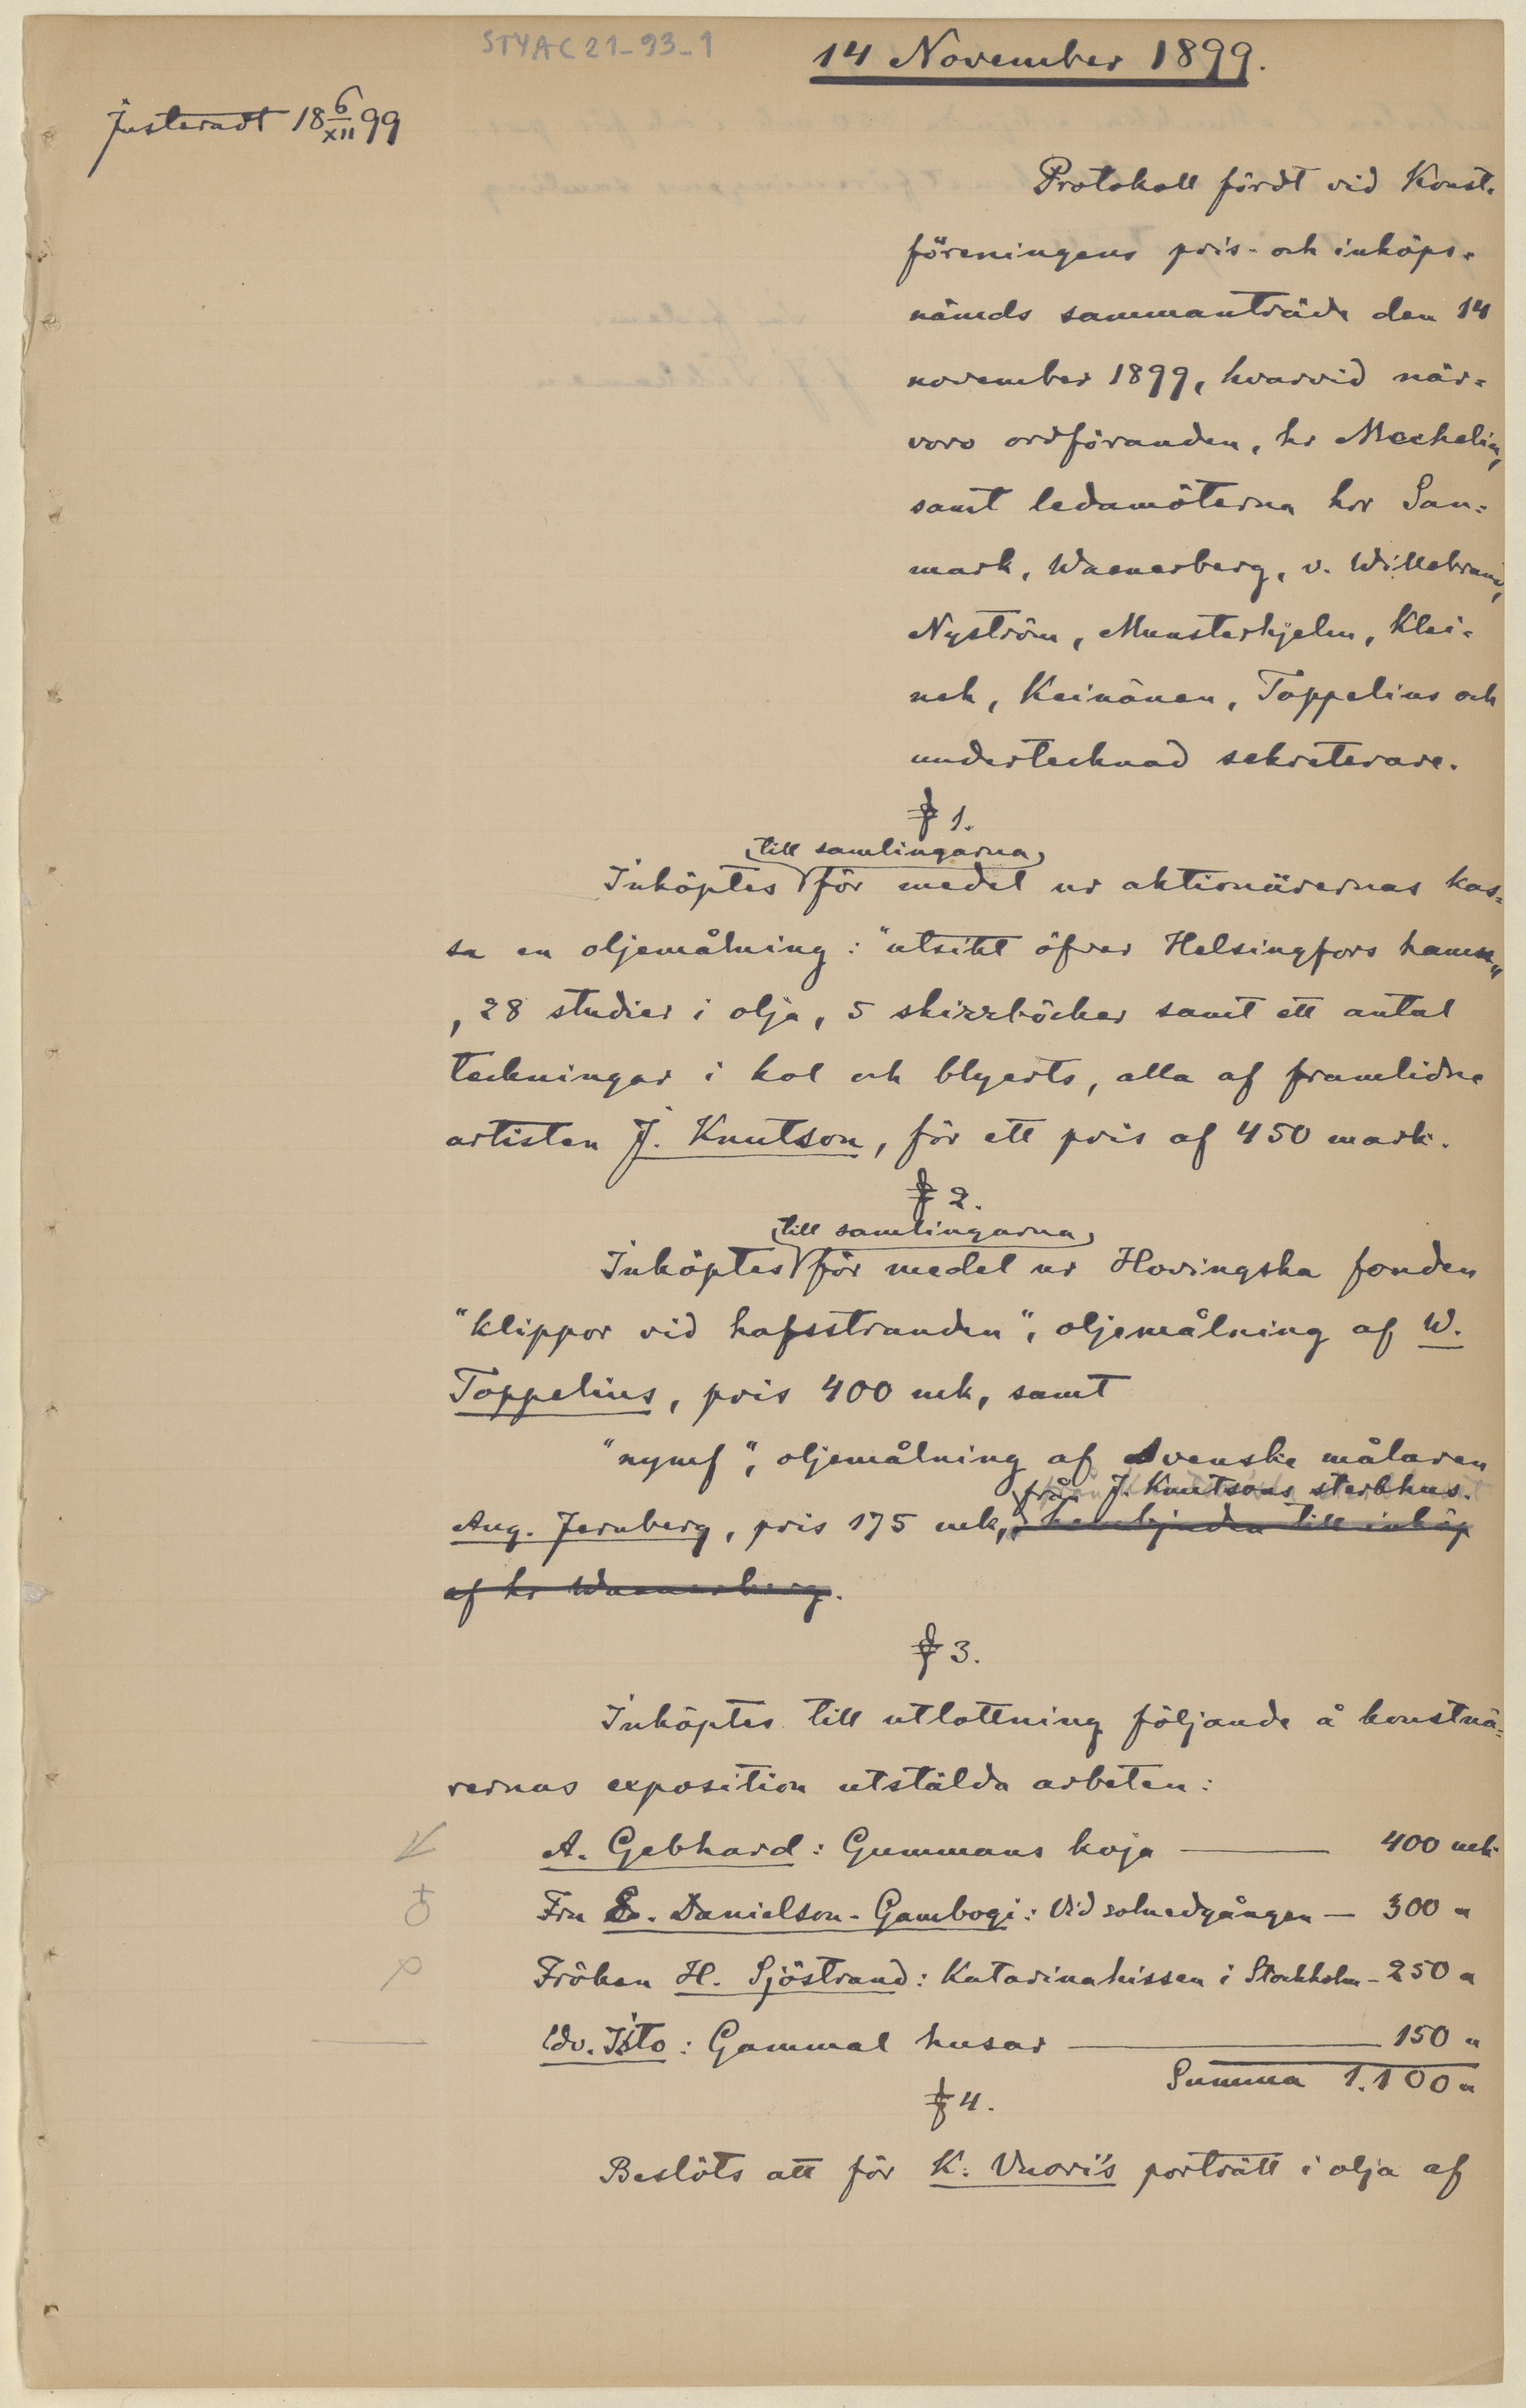 STYAC 21-93-1
14 November 1899.
Justeradt 18 6/XII 99
Protokoll fördt vid Konst-
föreningens pris- och inköps-
nämds sammanträde den 14
november 1899, hvarvid när-
voro ordföranden, hr Mechelin,
samt ledamöterna hrr San-
mark, Waenerberg, v. Willebrand,
Nyström, Munsterhjelm, Klei-
neh, Keinänen, Toppelius och
undertecknad sekreterare.
§ 1.
till samlingarna
Inköptes för medel ur aktionärernas kas-
sa en oljemålning: "utsikt öfver Helsingfors hamn"
, 28 studier i olja, 5 skizzböcker samt ett antal
teckningar i kol och blyerts, alla af framlidne
artisten J. Knutson, för ett pris af 450 mark.
§ 2.
till samlingarna
Inköptes för medel ur Hovingska fonden
"klippor vid hafsstranden", oljemålning af W.
Toppelius, pris 400 mk, samt
"nymf", oljemålning af svenske målaren
från J. Knutsons sterbhus.
Aug. Jernberg, pris 175 mk, hembjuden till inköp
af hr Waenerberg.
§ 3.
Inköptes till utlottning följande å konstnä-
rernas exposition utstälda arbeten:
A. Gebhard: Gummans koja — 400 mk
Fru E. Danielson-Gambogi: Vid solnedgången — 300 "
Fröken H. Sjöstrand: Katarinahissen i Stockholm - 250 "
Edv. Isto: Gammal husar — 150 "
Summa 1.100 "
§ 4.
Beslöts att för K. Vuori's porträtt i olja af